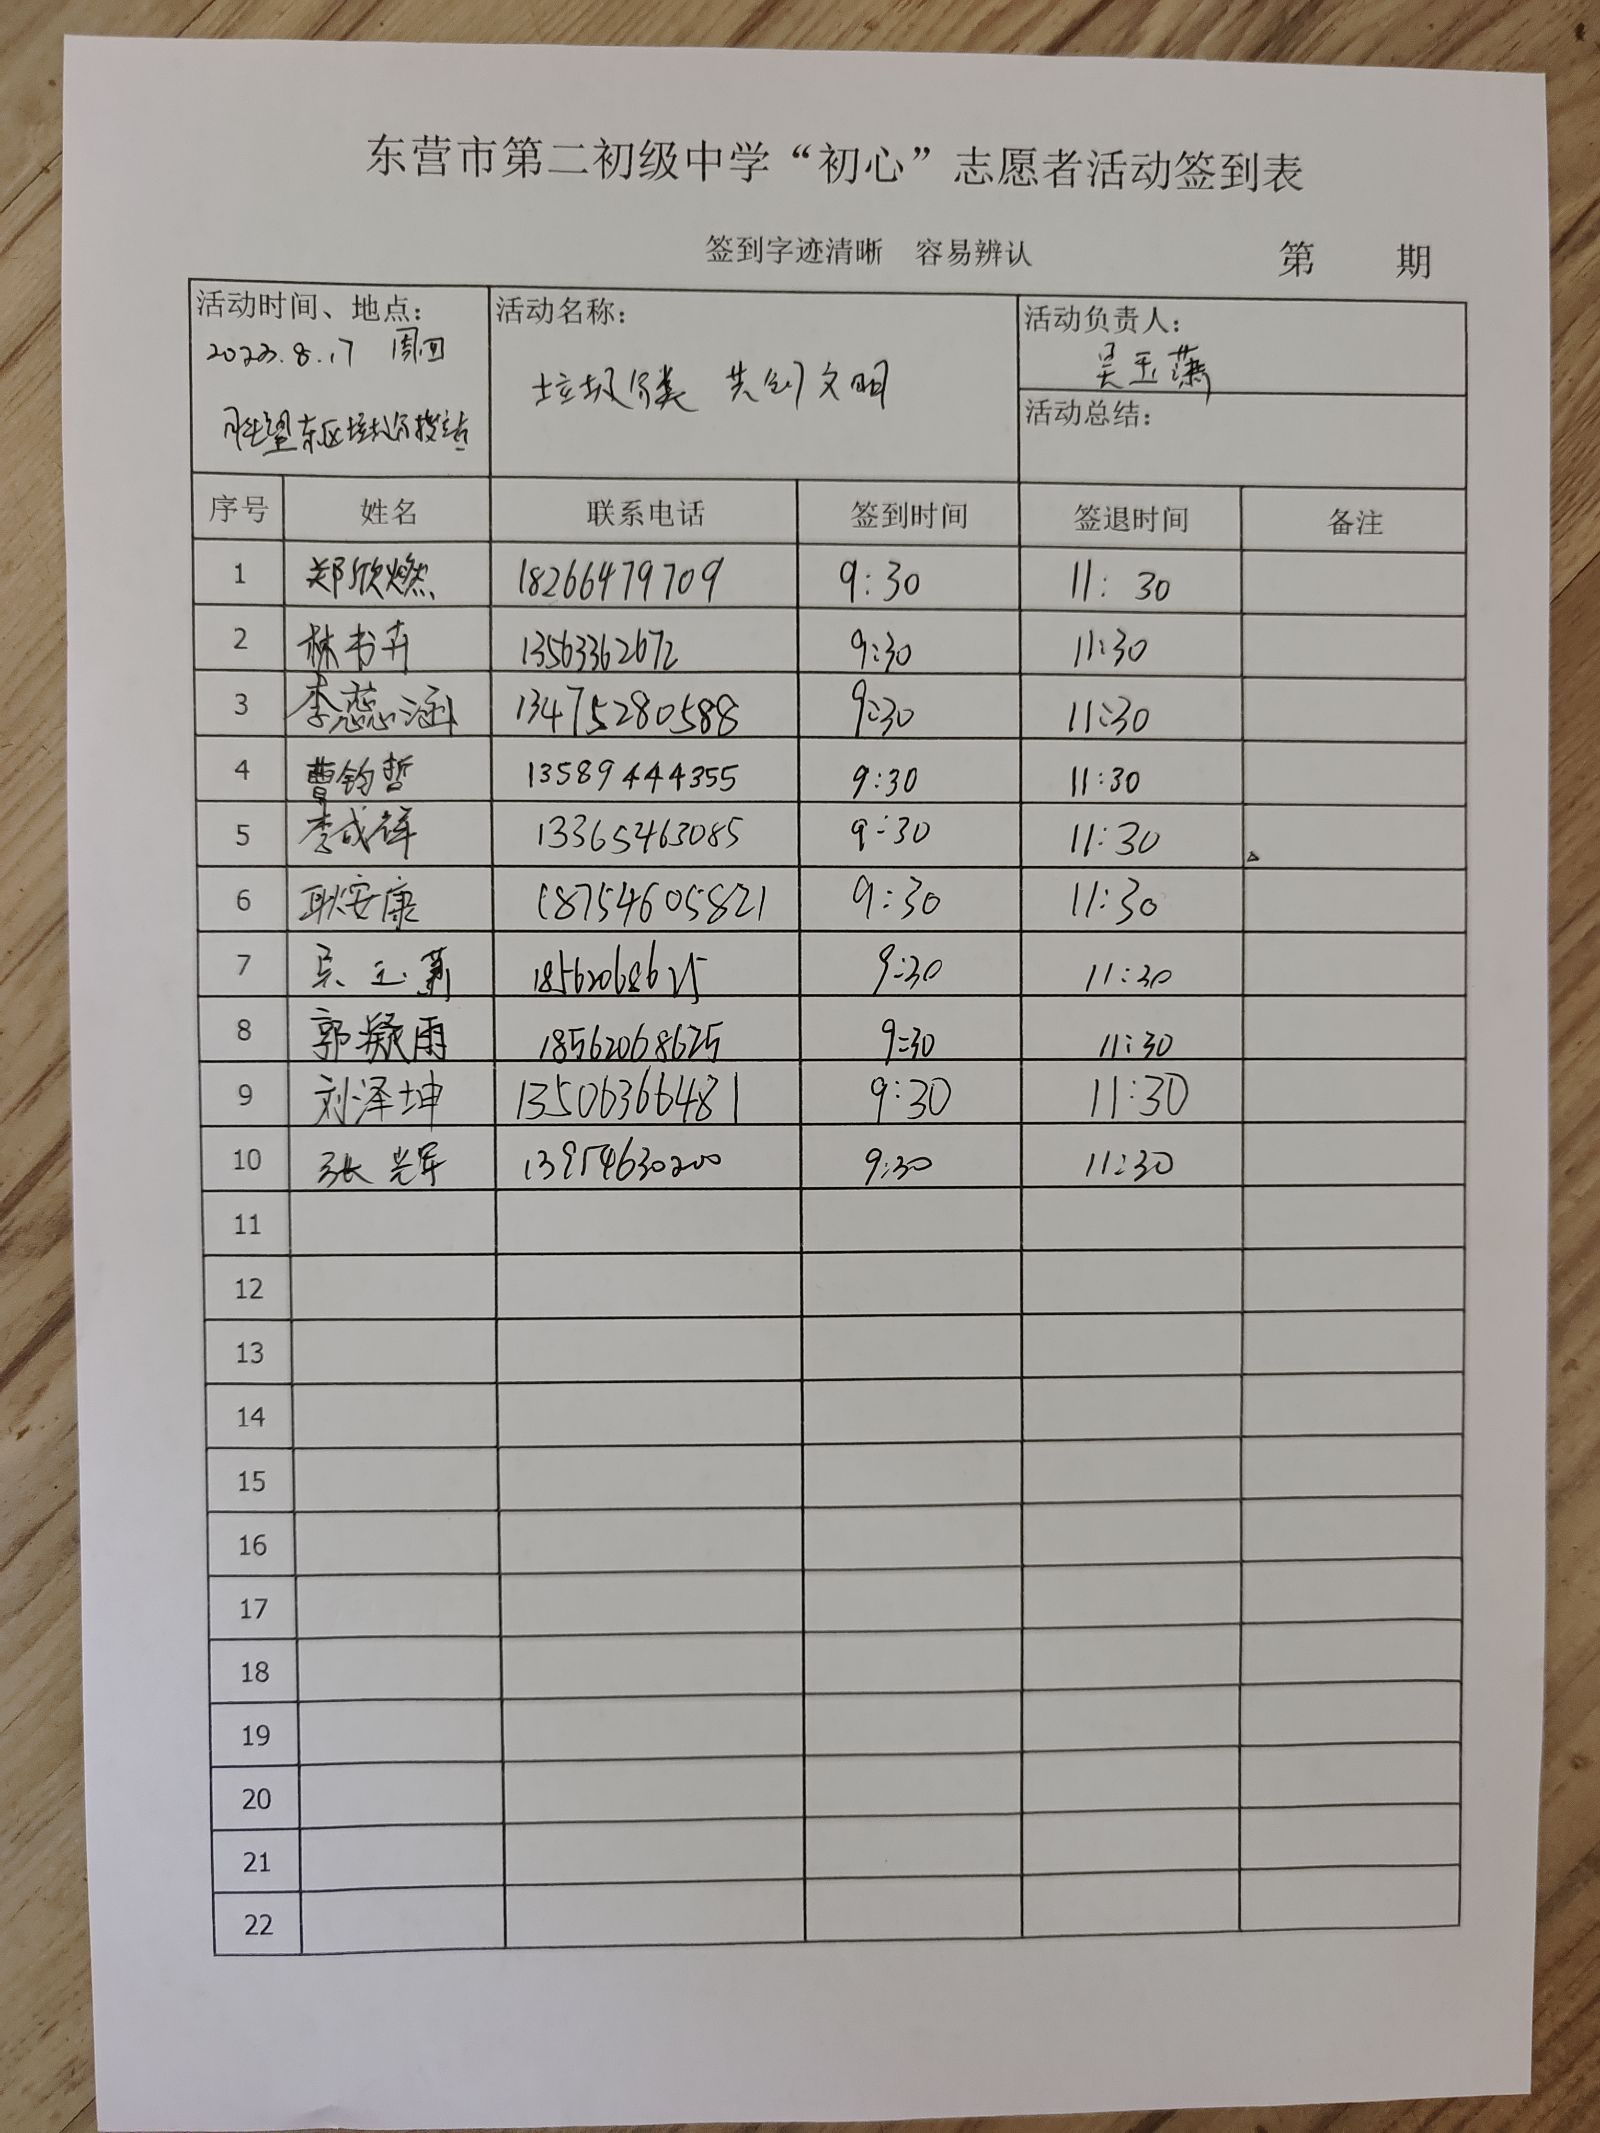 东营市第二初级中学“初心”志愿者活动签到表
签到字迹清晰 容易辨认 第 期
活动时间、地点： 活动名称： 活动负责人：
2023.8.17 周四 垃圾分类 共创文明 吴玉潇
胜望东区垃圾分投站 活动总结：
序号 姓名 联系电话 签到时间 签退时间 备注
1 郑欣燃 18266479709 9:30 11:30
2 林书卉 13563362672 9:30 11:30
3 李蕊涵 13475280588 9:30 11:30
4 曹钧哲 13589444355 9:30 11:30
5 李成锋 13365463085 9:30 11:30
6 耿安康 18754605821 9:30 11:30
7 吴玉 18562068625 9:30 11:30
8 郭凝雨 18562068625 9:30 11:30
9 刘泽坤 13506366481 9:30 11:30
10 张光军 13954630200 9:30 11:30
11
12
13
14
15
16
17
18
19
20
21
22